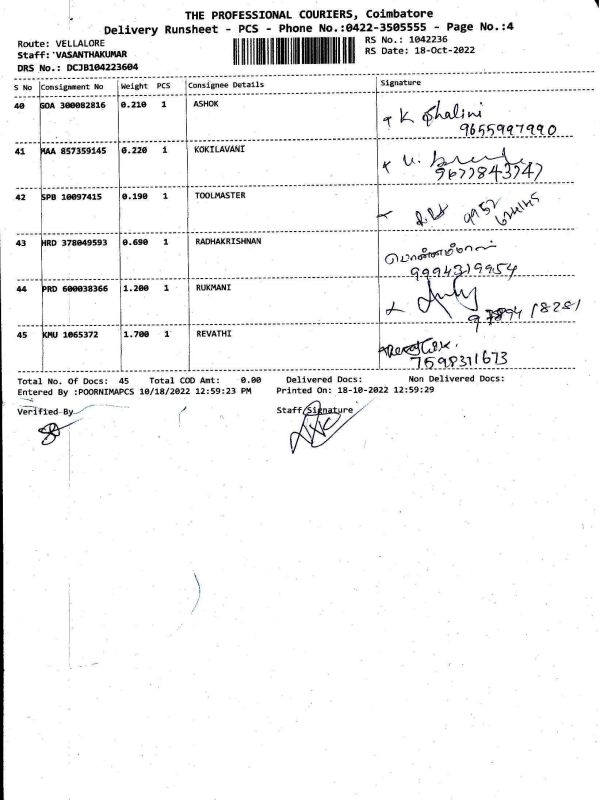 THE PROFESSIONAL COURIERS, Coimbatore
Delivery Runsheet - PCS - Phone No.:0422-3505555 - Page No.:4
Route: VELLALORE RS No.: 1042236
Staff: VASANTHAKUMAR RS Date: 18-Oct-2022
DRS No.: DCJB104223604
S No Consignment No Weight PCS Consignee Details Signature
40 GOA 300082816 0.210 1 ASHOK K Shalini
9655997990
41 MAA 857359145 0.220 1 KOKILAVANI
9677843747
42 SPB 10097415 0.190 1 TOOLMASTER 9952
43 HRD 378049593 0.690 1 RADHAKRISHNAN
9994319954
44 PRD 600038366 1.200 1 RUKMANI
97894 18281
45 KMU 1065372 1.700 1 REVATHI
7598311673
Total No. Of Docs: 45 Total COD Amt: 0.00 Delivered Docs: Non Delivered Docs:
Entered By :POORNIMAPCS 10/18/2022 12:59:23 PM Printed On: 18-10-2022 12:59:29
Verified By Staff Signature